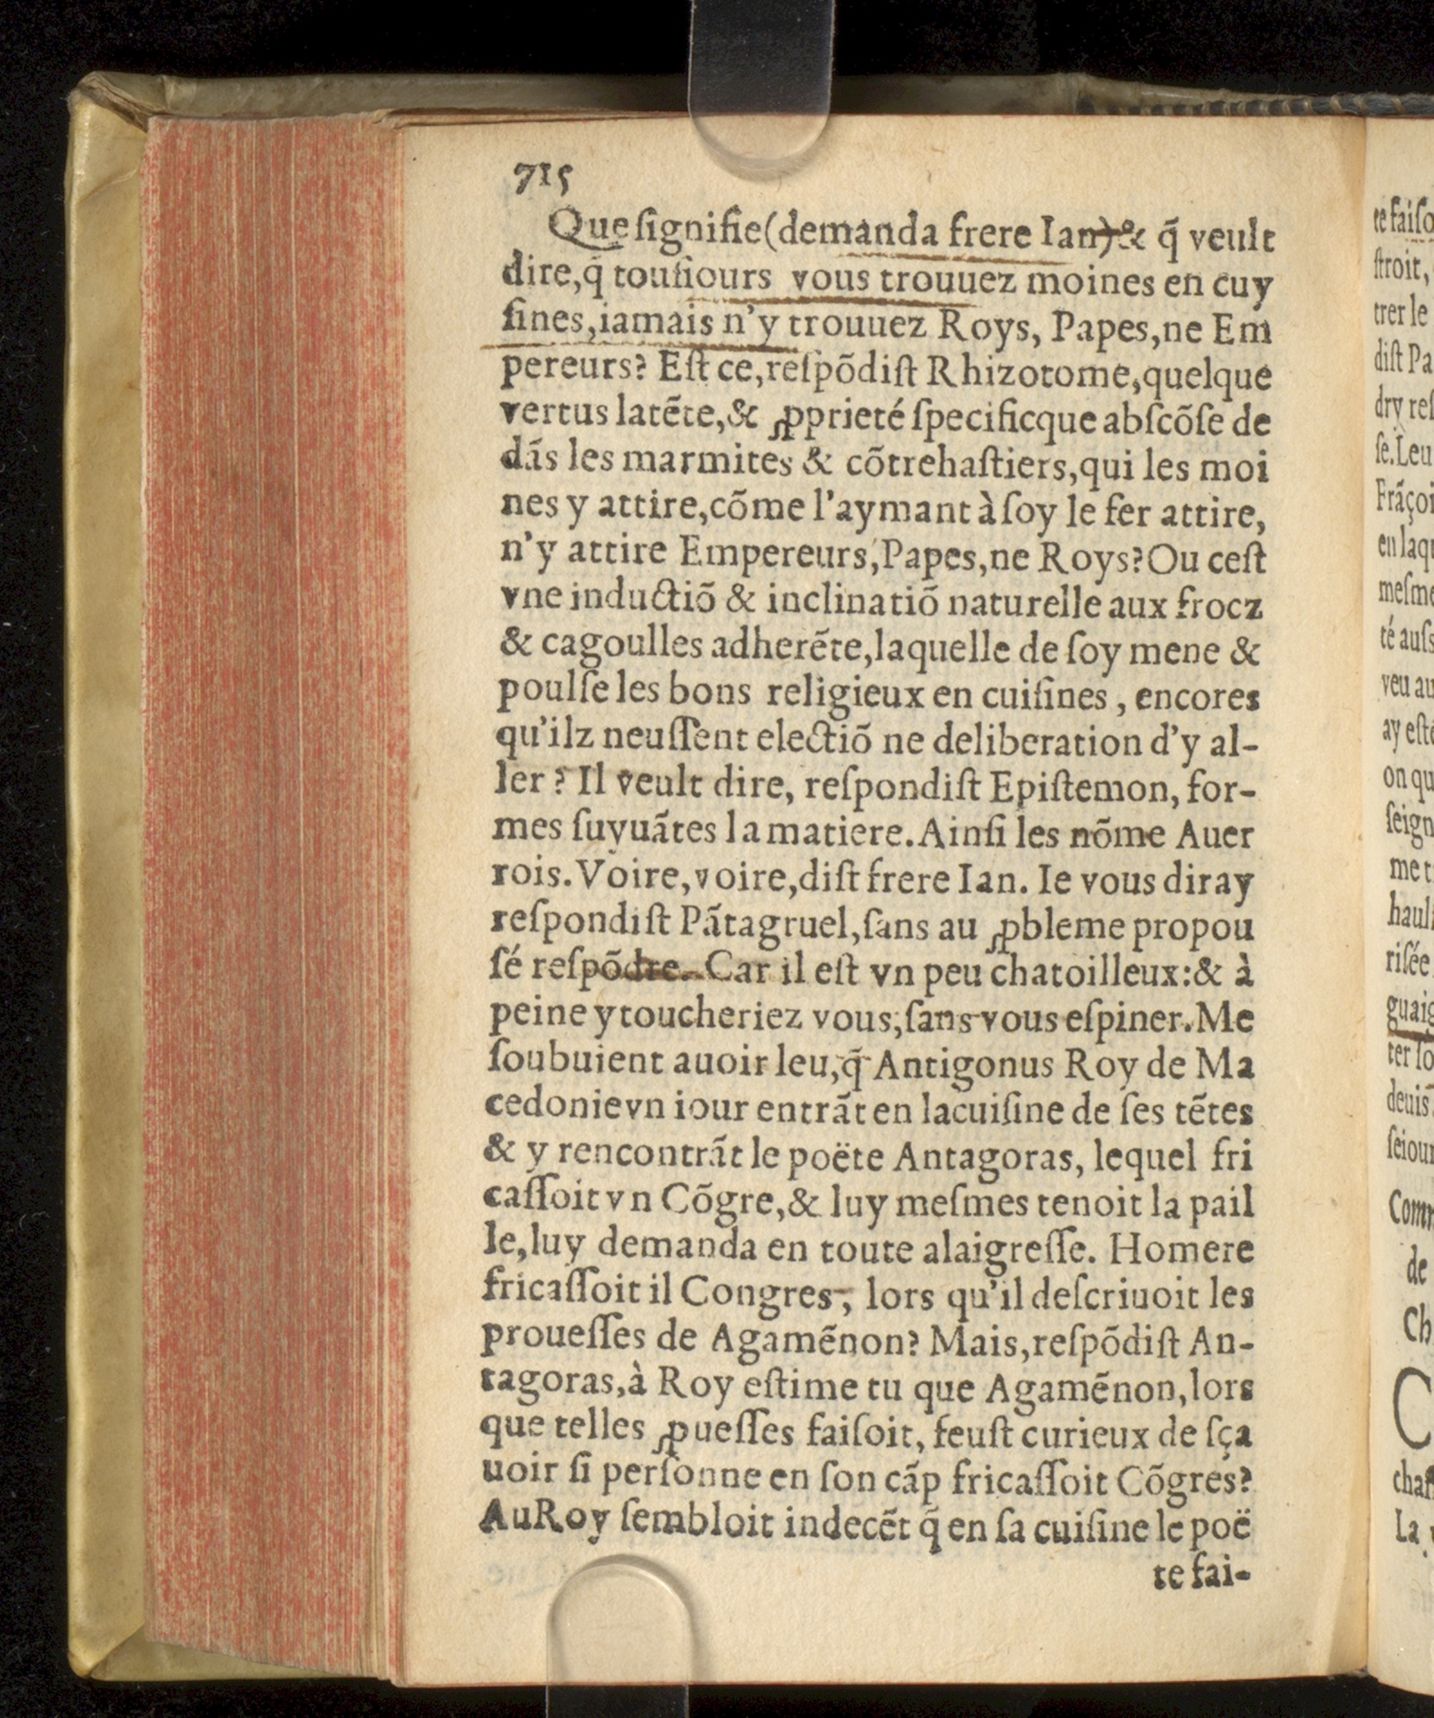 715
Que ſignifie (demanda frere Ian) & q̃ veult
dire, q̃ touſiours vous trouuez moines en cuy
ſines, iamais n'y trouuez Roys, Papes, ne Em
pereurs? Eſt ce, reſpõdiſt Rhizotome, quelque
vertus latẽte, & ꝓprieté ſpecificque abſcõſe de
dãs les marmites & cõtrehaſtiers, qui les moi
nes y attire, cõme l'aymant à ſoy le fer attire,
n'y attire Empereurs, Papes, ne Roys? Ou ceſt
vne inductiõ & inclinatiõ naturelle aux frocz
& cagoulles adherẽte, laquelle de ſoy mene &
poulſe les bons religieux en cuiſines, encores
qu'ilz neuſſent electiõ ne deliberation d'y al-
ler? Il veult dire, reſpondiſt Epiſtemon, for-
mes ſuyuãtes la matiere. Ainſi les nõme Auer
rois. Voire, voire, diſt frere Ian. Ie vous diray
reſpondiſt Pãtagruel, ſans au ꝓbleme propou
ſé reſpõdre. Car il eſt vn peu chatoilleux: & à
peine y toucheriez vous, ſans vous eſpiner. Me
ſoubuient auoir leu, q̃ Antigonus Roy de Ma
cedonie vn iour entrãt en la cuiſine de ſes tẽtes
& y rencontrãt le poëte Antagoras, lequel fri
caſſoit vn Cõgre, & luy meſmes tenoit la pail
le, luy demanda en toute alaigreſſe. Homere
fricaſſoit il Congres, lors qu'il deſcriuoit les
proueſſes de Agamẽnon? Mais, reſpõdiſt An-
tagoras, à Roy eſtime tu que Agamẽnon, lors
que telles ꝓueſſes faiſoit, feuſt curieux de ſça
uoir ſi perſonne en ſon cãp fricaſſoit Cõgres?
Au Roy ſembloit indecẽt q̃ en ſa cuiſine le poë
te fai-